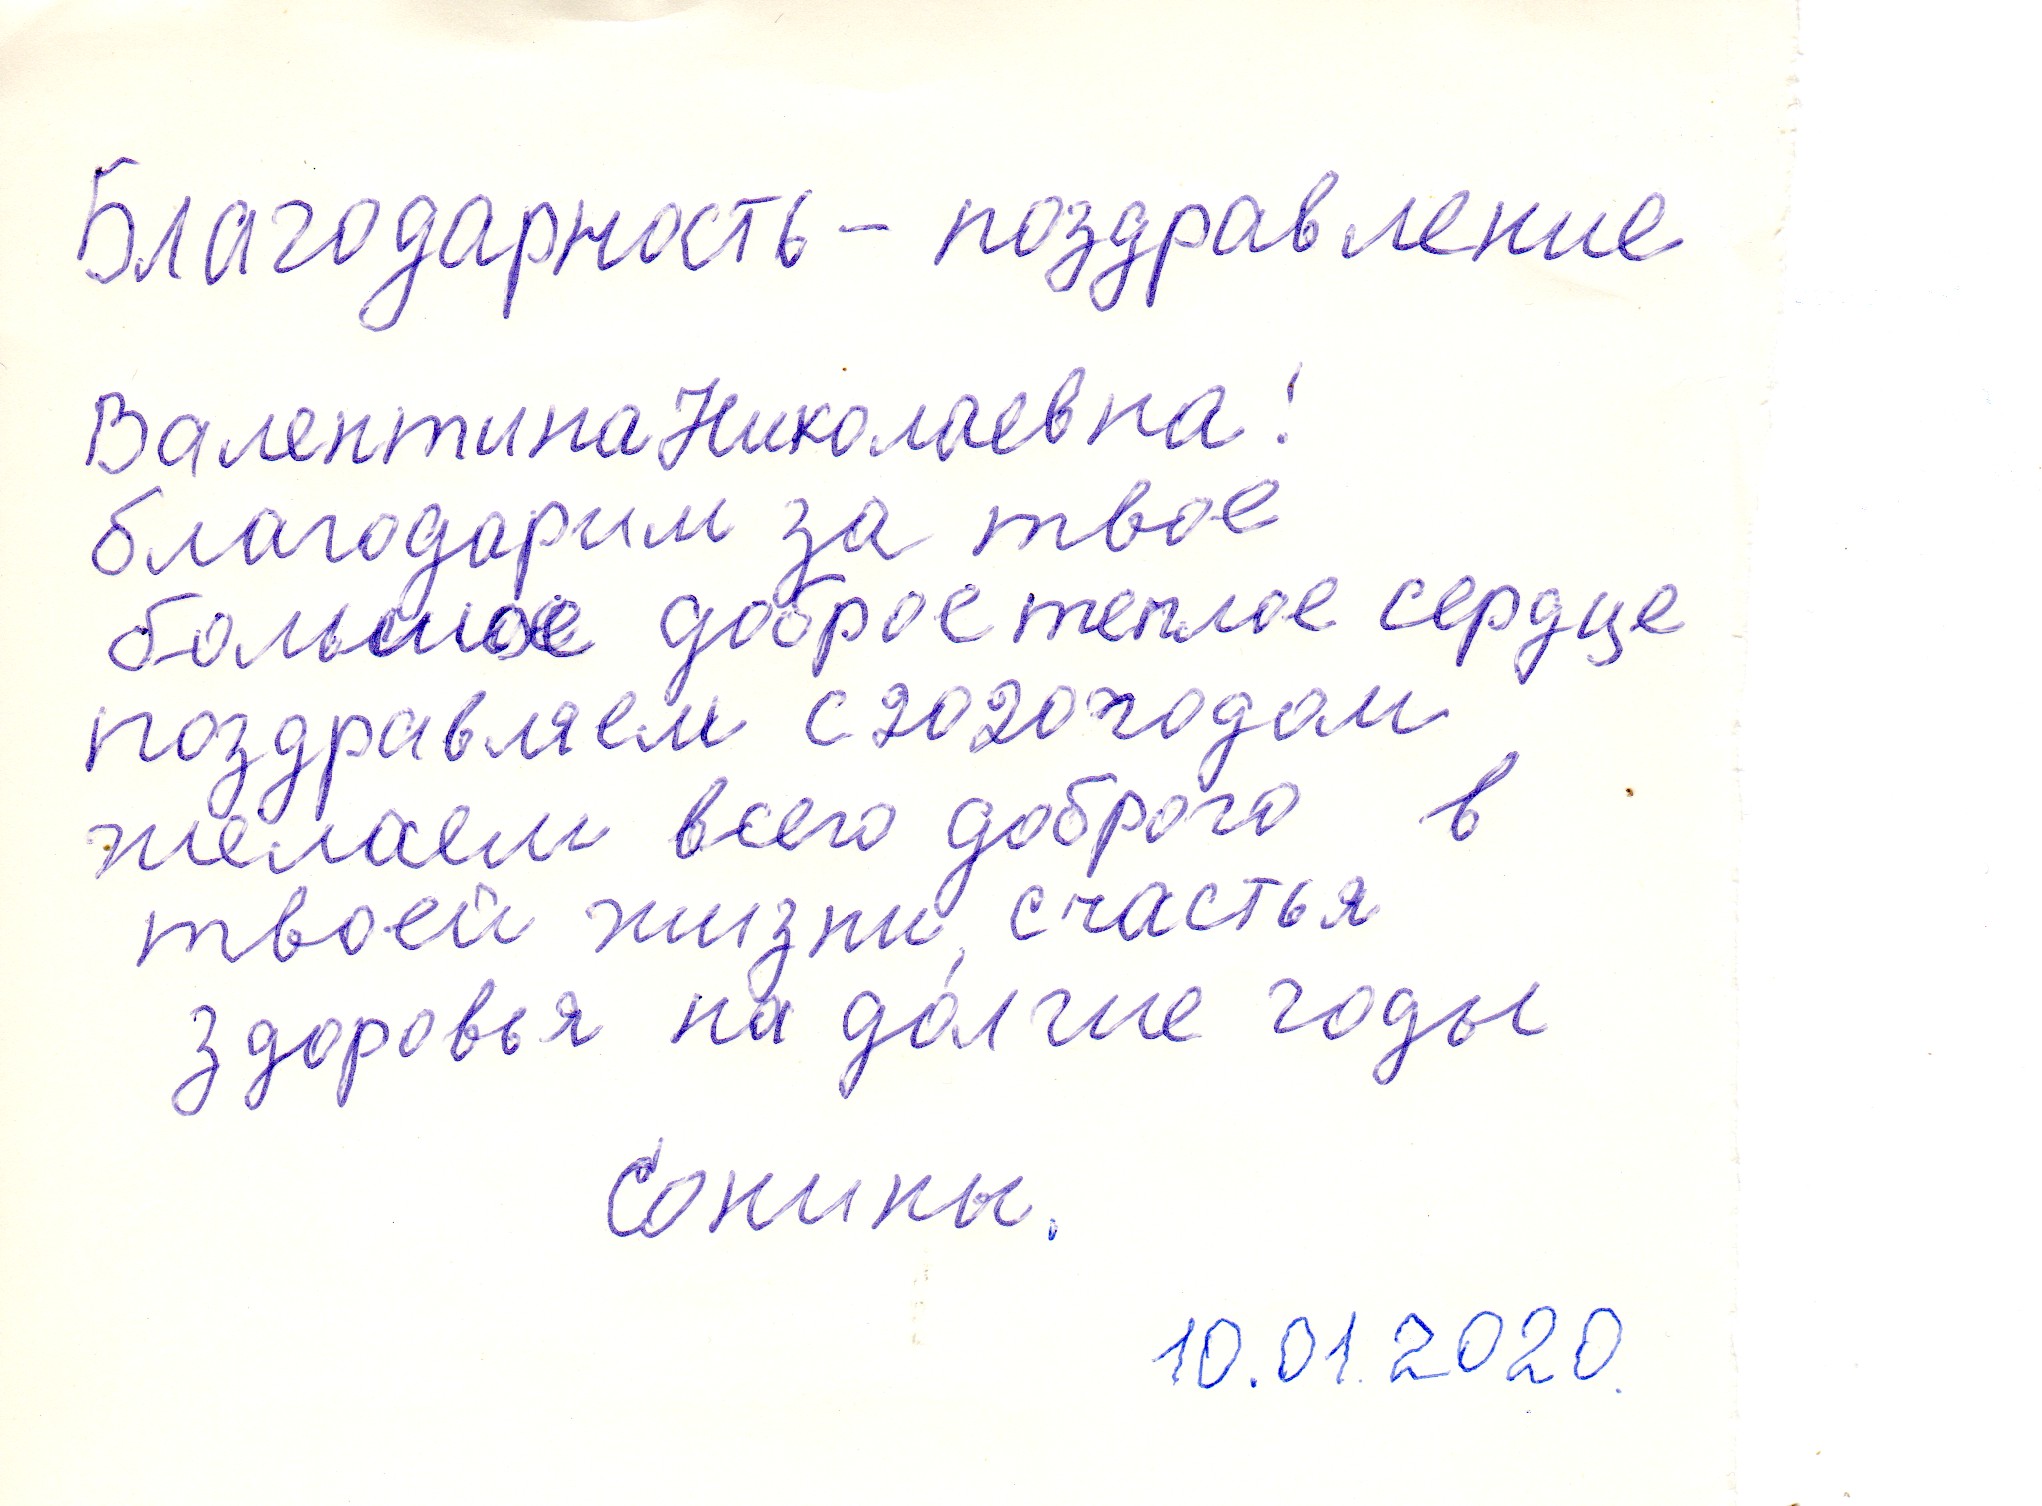 Благодарность - поздравление
Валентина Николаевна!
благодарим за твое
большое доброе теплое сердце
поздравляем с 2020 годом
желаем всего доброго в
твоей жизни, счастья
здоровья на долгие годы
Сонины.
10.01.2020.